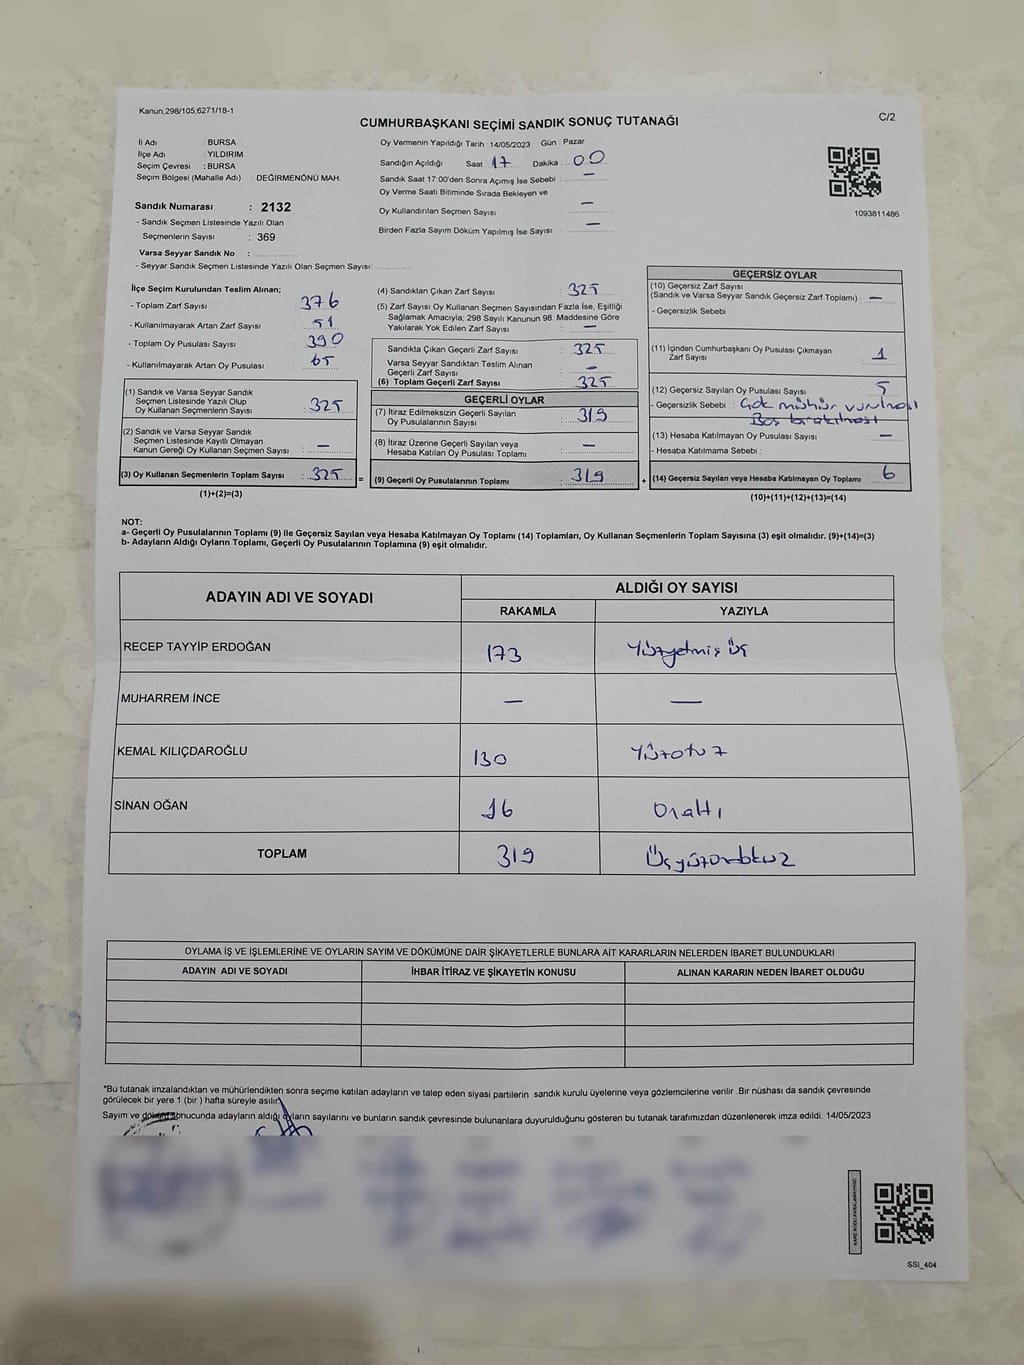 Kanun;298/105,6271/18-1
C/2
CUMHURBAŞKANI SEÇİMİ SANDIK SONUÇ TUTANAĞI
İl Adı : BURSA
İlçe Adı : YILDIRIM
Seçim Çevresi : BURSA
Seçim Bölgesi (Mahalle Adı) : DEĞİRMENÖNÜ MAH.
Oy Vermenin Yapıldığı Tarih :14/05/2023 Gün : Pazar
Sandığın Açıldığı Saat 17 Dakika : 00
Sandık Saat 17:00'den Sonra Açımış İse Sebebi : —
Oy Verme Saati Bitiminde Sırada Bekleyen ve
Oy Kullandırılan Seçmen Sayısı : —
Birden Fazla Sayım Döküm Yapılmış İse Sayısı : —
1093811486
Sandık Numarası : 2132
- Sandık Seçmen Listesinde Yazılı Olan
Seçmenlerin Sayısı : 369
Varsa Seyyar Sandık No :
- Seyyar Sandık Seçmen Listesinde Yazılı Olan Seçmen Sayısı:
İlçe Seçim Kurulundan Teslim Alınan;
- Toplam Zarf Sayısı : 376
- Kullanılmayarak Artan Zarf Sayısı : 51
- Toplam Oy Pusulası Sayısı : 390
- Kullanılmayarak Artan Oy Pusulası : 65
(1) Sandık ve Varsa Seyyar Sandık
Seçmen Listesinde Yazılı Olup
Oy Kullanan Seçmenlerin Sayısı : 325
(2) Sandık ve Varsa Seyyar Sandık
Seçmen Listesinde Kayıtlı Olmayan
Kanun Gereği Oy Kullanan Seçmen Sayısı : —
(3) Oy Kullanan Seçmenlerin Toplam Sayısı : 325
(1)+(2)=(3)
(4) Sandıktan Çıkan Zarf Sayısı : 325
(5) Zarf Sayısı Oy Kullanan Seçmen Sayısından Fazla İse, Eşitliği
Sağlamak Amacıyla; 298 Sayılı Kanunun 98. Maddesine Göre
Yakılarak Yok Edilen Zarf Sayısı : —
Sandıkta Çıkan Geçerli Zarf Sayısı : 325
Varsa Seyyar Sandıktan Teslim Alınan
Geçerli Zarf Sayısı : —
(6) Toplam Geçerli Zarf Sayısı : 325
GEÇERLİ OYLAR
(7) İtiraz Edilmeksizin Geçerli Sayılan
Oy Pusulalarının Sayısı : 319
(8) İtiraz Üzerine Geçerli Sayılan veya
Hesaba Katılan Oy Pusulası Toplamı : —
= (9) Geçerli Oy Pusulalarının Toplamı : 319
GEÇERSİZ OYLAR
(10) Geçersiz Zarf Sayısı
(Sandık ve Varsa Seyyar Sandık Geçersiz Zarf Toplamı) : —
- Geçersizlik Sebebi :
(11) İçinden Cumhurbaşkanı Oy Pusulası Çıkmayan
Zarf Sayısı : 1
(12) Geçersiz Sayılan Oy Pusulası Sayısı : 5
- Geçersizlik Sebebi : Çok mühür vurulması
Boş bırakılması
(13) Hesaba Katılmayan Oy Pusulası Sayısı : —
- Hesaba Katılmama Sebebi :
+ (14) Geçersiz Sayılan veya Hesaba Katılmayan Oy Toplamı : 6
(10)+(11)+(12)+(13)=(14)
NOT:
a- Geçerli Oy Pusulalarının Toplamı (9) ile Geçersiz Sayılan veya Hesaba Katılmayan Oy Toplamı (14) Toplamları, Oy Kullanan Seçmenlerin Toplam Sayısına (3) eşit olmalıdır. (9)+(14)=(3)
b- Adayların Aldığı Oyların Toplamı, Geçerli Oy Pusulalarının Toplamına (9) eşit olmalıdır.
ADAYIN ADI VE SOYADI
ALDIĞI OY SAYISI
RAKAMLA YAZIYLA
RECEP TAYYİP ERDOĞAN 173 Yüzyetmiş üç
MUHARREM İNCE — —
KEMAL KILIÇDAROĞLU 130 Yüzotuz
SİNAN OĞAN 16 Onaltı
TOPLAM 319 Üçyüzondokuz
OYLAMA İŞ VE İŞLEMLERİNE VE OYLARIN SAYIM VE DÖKÜMÜNE DAİR ŞİKAYETLERLE BUNLARA AİT KARARLARIN NELERDEN İBARET BULUNDUKLARI
ADAYIN ADI VE SOYADI İHBAR İTİRAZ VE ŞİKAYETİN KONUSU ALINAN KARARIN NEDEN İBARET OLDUĞU
*Bu tutanak imzalandıktan ve mühürlendikten sonra seçime katılan adayların ve talep eden siyasi partilerin sandık kurulu üyelerine veya gözlemcilerine verilir. Bir nüshası da sandık çevresinde
görülecek bir yere 1 (bir ) hafta süreyle asılır.
Sayım ve döküm sonucunda adayların aldığı oyların sayılarını ve bunların sandık çevresinde bulunanlara duyurulduğunu gösteren bu tutanak tarafımızdan düzenlenerek imza edildi. 14/05/2023
SSI_404